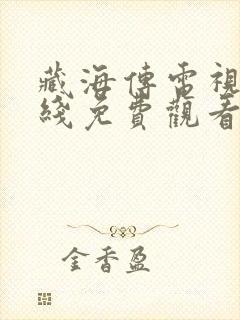 藏海傳電視
綫免費觀看
金香盈